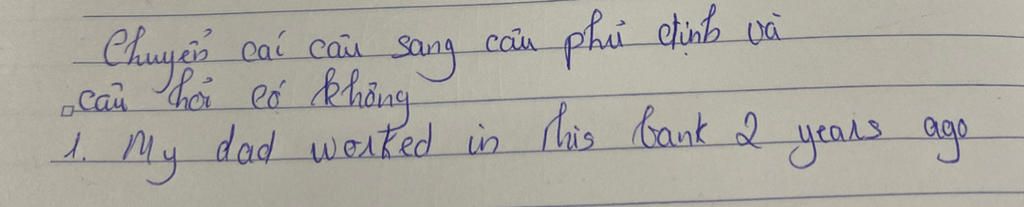 Chuyển các câu sang câu phủ định và
câu hỏi có không
1. My dad worked in this bank 2 years ago